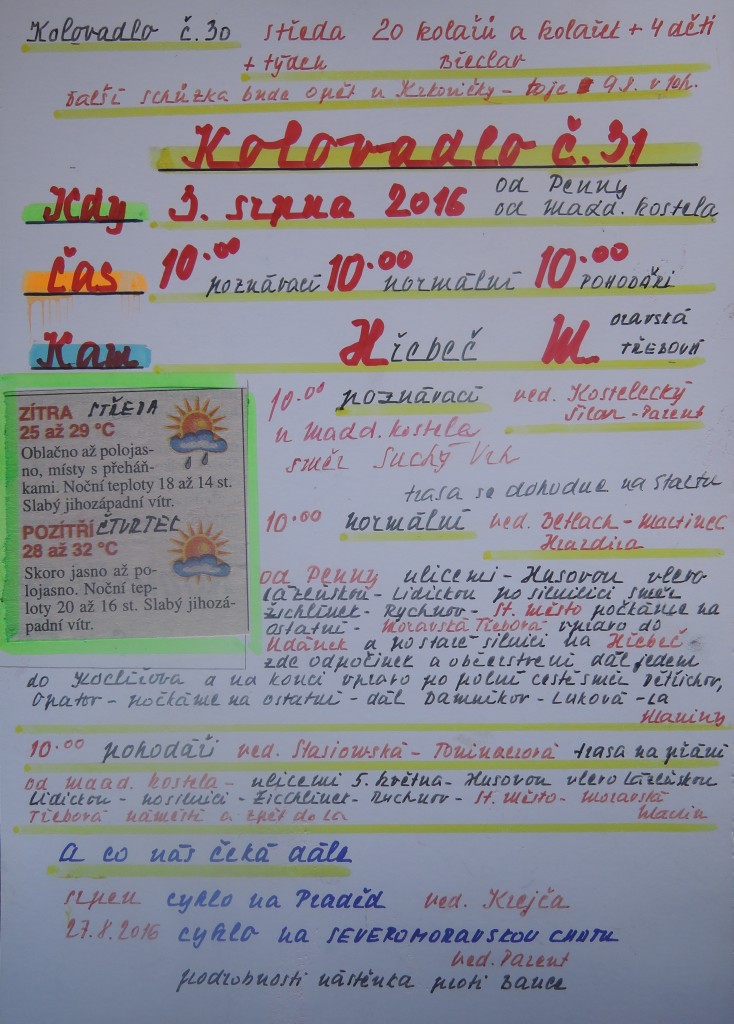 Kolovadlo č.30 středa 20 kolařů a kolařek + 4 děti
+ týden Břeclav
Další schůzka bude opět u Krkovičky - to je 9.8. v 10h.
Kolovadlo č.31
Kdy 3. srpna 2016 od Penny
od madd. kostela
čas 10.00 poznávací 10.00 normální 10.00 POHODÁŘI
Kam Hřebeč MORAVSKÁ
TŘEBOVÁ
ZÍTRA STŘEDA
25 až 29 °C
Oblačno až polojas-
no, místy s přeháň-
kami. Noční teploty 18 až 14 st.
Slabý jihozápadní vítr.
POZÍTŘÍ ČTVRTEK
28 až 32 °C
Skoro jasno až po-
lojasno. Noční tep-
loty 20 až 16 st. Slabý jihozá-
padní vítr.
10.00 poznávací ved. Kostelecký
Šilar - Parent
u madd. kostela
směr Suchý Vrh
trasa se dohodne na startu
10.00 normální ved. Betlach - Martinec
Hrazdira
od Penny ulicemi - Husovou vlevo
Lázeňskou - Lidickou po silnici směr
Žichlínek - Rychnov - St. město počkáme na
ostatní - Moravská Třebová vpravo do
Udánek a po staré silnici na Hřebeč
zde odpočinek a občerstvení dál jedem
do Koclířova a na konci vpravo po polní cestě směr Dětřichov,
Opatov - počkáme na ostatní - dál Damníkov - Luková - La
Hlaviny
10.00 pohodáři ved. Stasiowská - trasa na přání
od maad. kostela - ulicemi 5. května - Husovou vlevo Lázeňskou
Lidickou - po silnici - Žichlínek - Rychnov - St. město - Moravská
Třebová náměstí a zpět do La
A co nás čeká dále
srpen cyklo na Praděd ved. Krejča
27.8.2016 cyklo na SEVEROMORAVSKOU CHATU
ved. Parent
podrobnosti nástěnka proti Bance